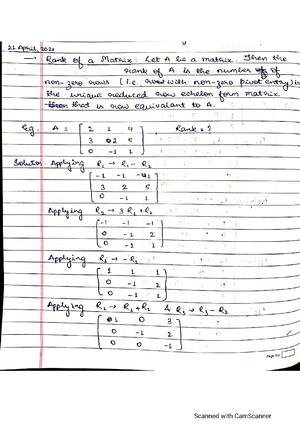 21 April, 2021
→ Rank of a Matrix: Let A be a matrix. Then the
rank of A is the number of
non-zero rows (i.e. row with non-zero pivot entry) in
the unique reduced row echelon form matrix
that is row equivalent to A.
Eg. A = [ 2 1 4 Rank = ?
3 2 5
0 -1 1 ]
Solution Applying R₁ → R₁ - R₂
[ -1 -1 -1
3 2 5
0 -1 1 ]
Applying R₂ → 3R₁ + R₂
[ -1 -1 -1
0 -1 2
0 -1 1 ]
Applying R₁ → -R₁
[ 1 1 1
0 -1 2
0 -1 1 ]
Applying R₁ → R₁ + R₂ & R₃ → R₃ - R₂
[ 1 0 3
0 -1 2
0 0 -1 ]
Page No.
Scanned with CamScanner